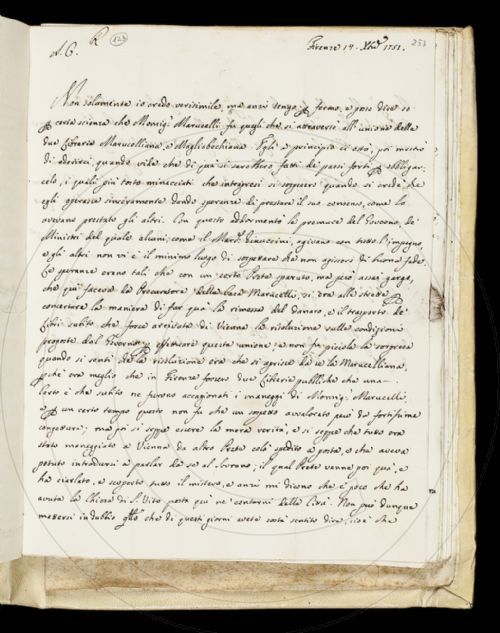 A. C. R. 123
Firenze 14. Xbre 1751. 253
Non solamente io credo verisimile, ma anzi tengo p fermo, e posso dire so
p certa scienza che Monsig.r Marucelli fu quegli che si attraversò all'unione delle
due Librerie Marucelliana, e Magliabechiana. Egli a principio ci ostò, poi mostrò
di aderirci, quando vide che di qua si sarebbero fatti de' passi forti p obbligar-
celo, i quali più tosto minacciati che intrapresi si sospesero quando si credè che
egli operasse sinceramente dando speranze di prestare il suo consenso, come lo
avevano prestato gli altri. Con questo addormentò le premure del Governo, de'
Ministri del quale alcuni, come il Mar. Ginori, agivano con tutto l'impegno,
e gli altri non vi è il minimo luogo di sospettare che non agissero di buona fede.
Le speranze erano tali che con un certo Prete garbato, ma però assai
che qui faceva da Procuratore della Casa Marucelli, si era alle strette p
concertare la maniera di far qua la rimessa del danaro, e il trasporto de'
Libri subito che fosse arrivata di Vienna la risoluzione sulle condizioni
proposte dal Governo p effettuare questa unione, e non fu piccola la sorpresa
quando si sentì che la risoluzione era che si aprisse da se la Marucelliana,
pche era meglio che in Firenze fossero due Librerie pubbliche che una.
Certo è che subito ne furono accagionati i maneggi di Monsig.r Marucelli
e p un certo tempo questo non fu che un sospetto avvalorato però da fortissime
congetture; ma poi si seppe essere la mera verità, e si seppe che tutto era
stato maneggiato a Vienna da altro Prete colà spedito a posta, e che aveva
potuto introdursi a parlar da se al Sovrano; il qual Prete venne poi qua, e
ha ciarlato, e scoperto tutto il mistero, e anzi mi dicono che è poco che ha
avuta la Chiesa di S. Vito posta qui ne' contorni della Città. Non può dunque
mettersi in dubbio quello che di questi giorni avete costà sentito dire, cioè che